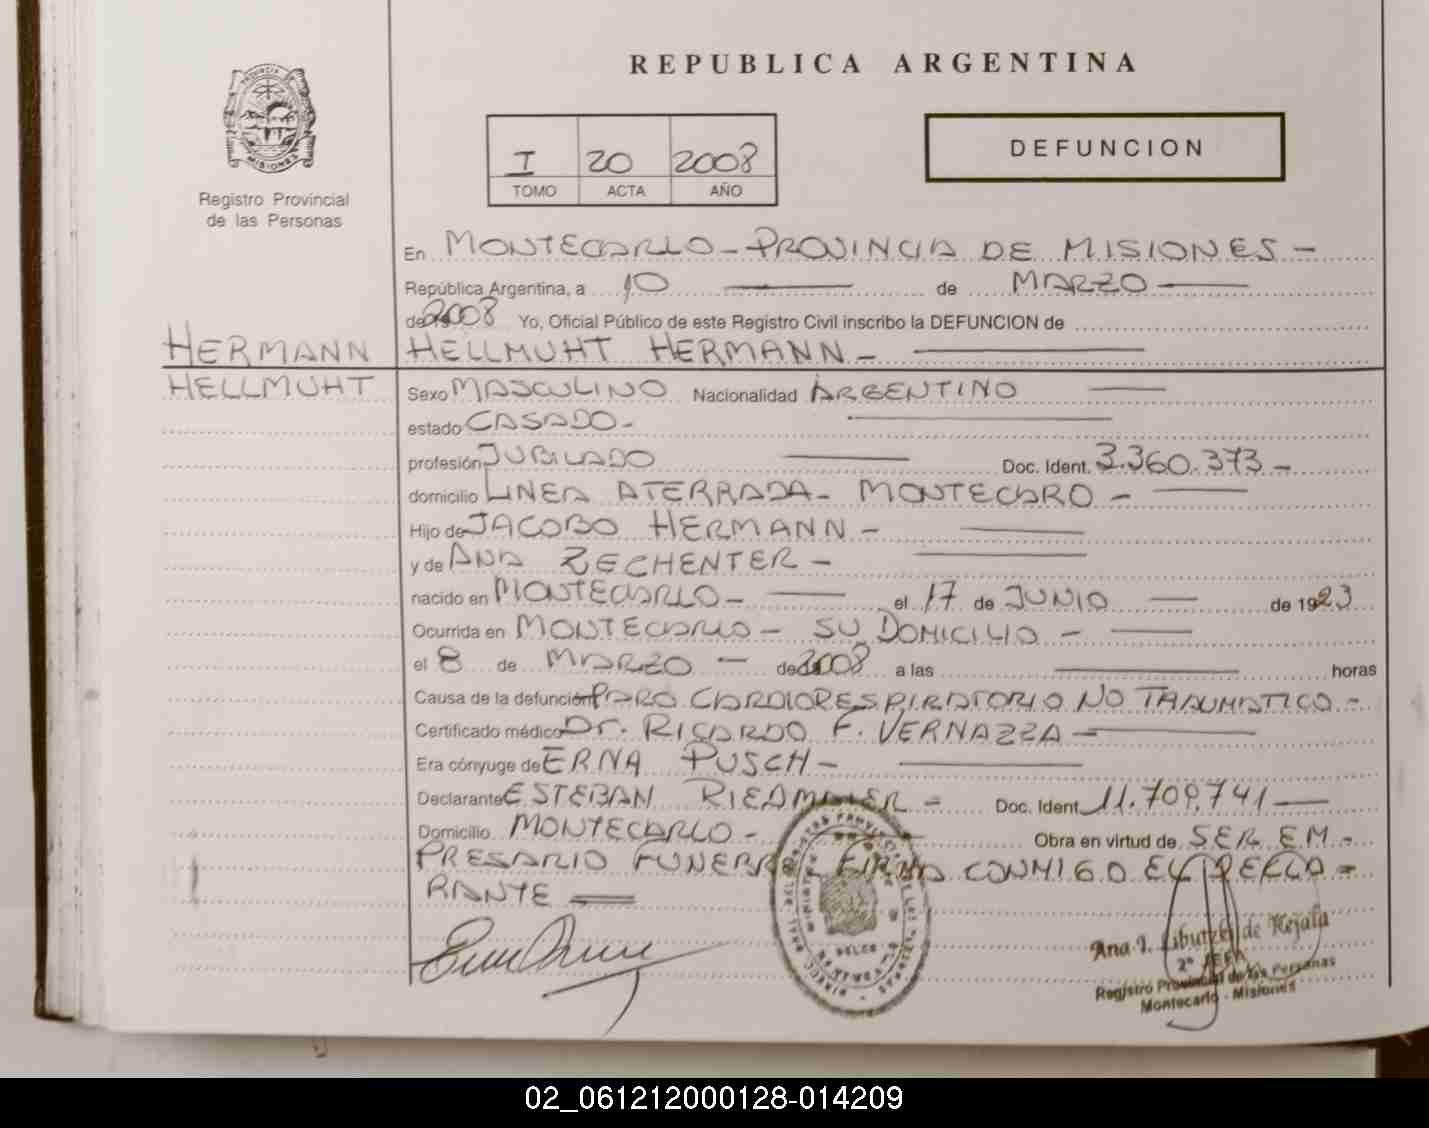 REPUBLICA ARGENTINA
PROVINCIA
MISIONES
Registro Provincial
de las Personas
I 20 2008
TOMO ACTA AÑO
DEFUNCION
En MONTECARLO - PROVINCIA DE MISIONES -
República Argentina, a 10 de MARZO
de 2008 Yo, Oficial Público de este Registro Civil inscribo la DEFUNCION de
HERMANN
HELLMUHT
HELLMUHT HERMANN -
Sexo MASCULINO Nacionalidad ARGENTINO
estado CASADO -
profesión JUBILADO Doc. Ident. 3.360.373 -
domicilio LINEA ATERRADA - MONTECARO -
Hijo de JACOBO HERMANN -
y de ANA ZECHENTER -
nacido en MONTECARLO - el 17 de JUNIO de 1923
Ocurrida en MONTECARLO - SU DOMICILIO -
el 8 de MARZO - de 2008 a las horas
Causa de la defunción PARO CARDIORESPIRATORIO NO TRAUMATICO -
Certificado médico Dr. RICARDO F. VERNAZZA -
Era cónyuge de ERNA PUSCH -
Declarante ESTEBAN RIEDMAIER - Doc. Ident. 11.709.741
Domicilio MONTECARLO - Obra en virtud de SER EM-
PRESARIO FUNEBRE FIRMA CONMIGO EL DECLA-
RANTE
Ana I. de Mejala
2° JEFE
Registro Provincial de las Personas
Montecarlo - Misiones
02_061212000128-014209